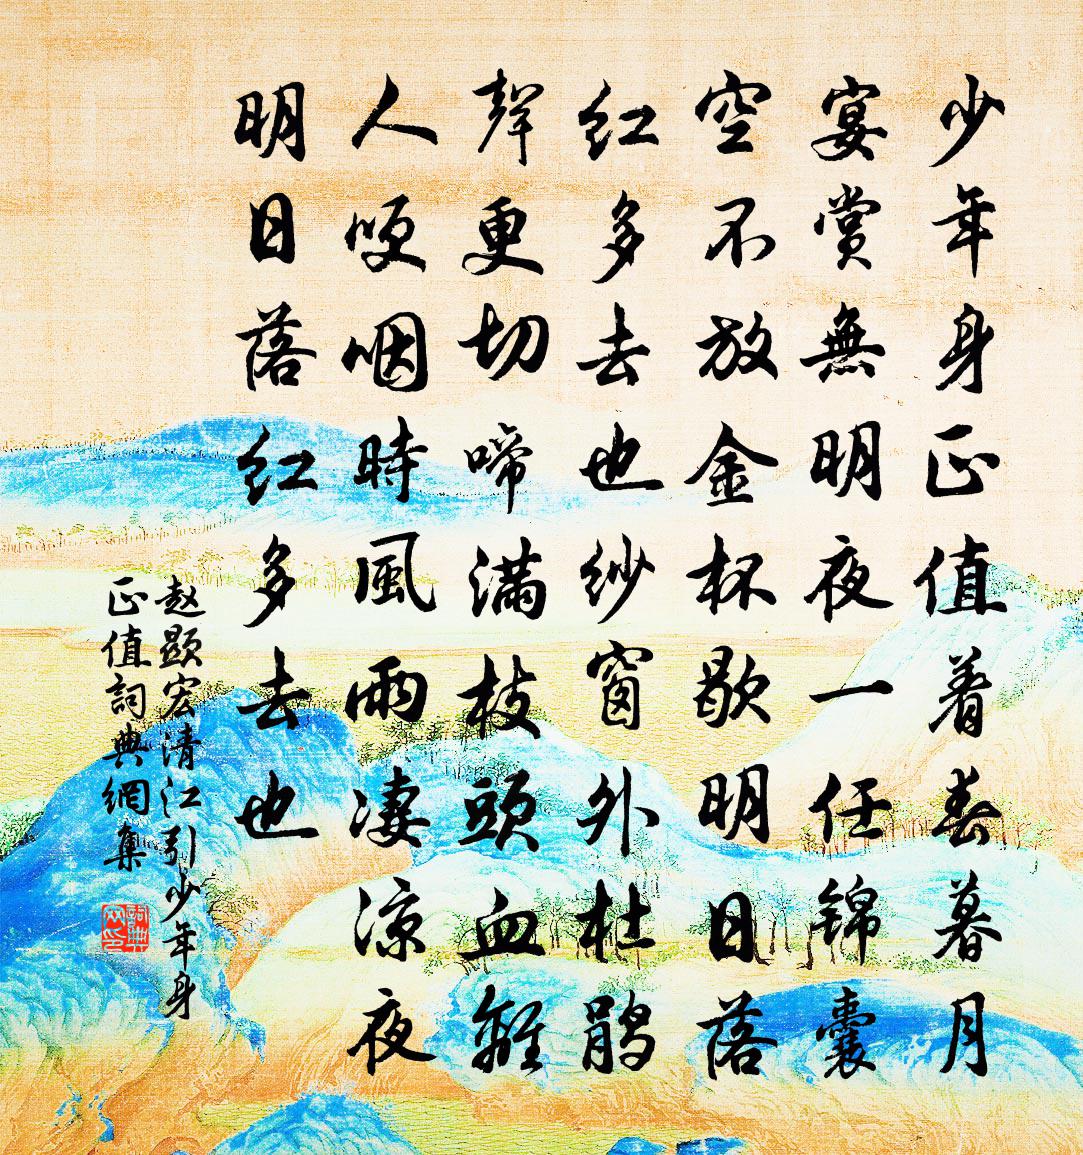 少年身正值着春暮月
宴賞無明夜一任錦囊
空不放金杯歇明日落
红多去也纱窗外杜鹃
聲更切啼滿枝頭血離
人哽咽時風雨凄涼夜
明日落红多去也
赵顕宏清江引少年身
正值詞典網集